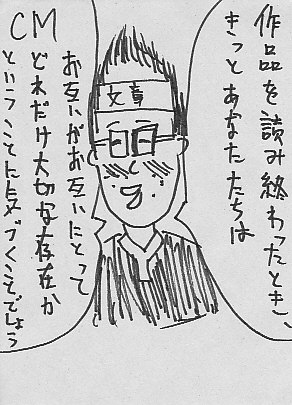 作品を読み終わったとき、
きっとあなたたちは
文章
お互いがお互いにとって
どれだけ大切な存在か
ということに気づくことでしょう
CM